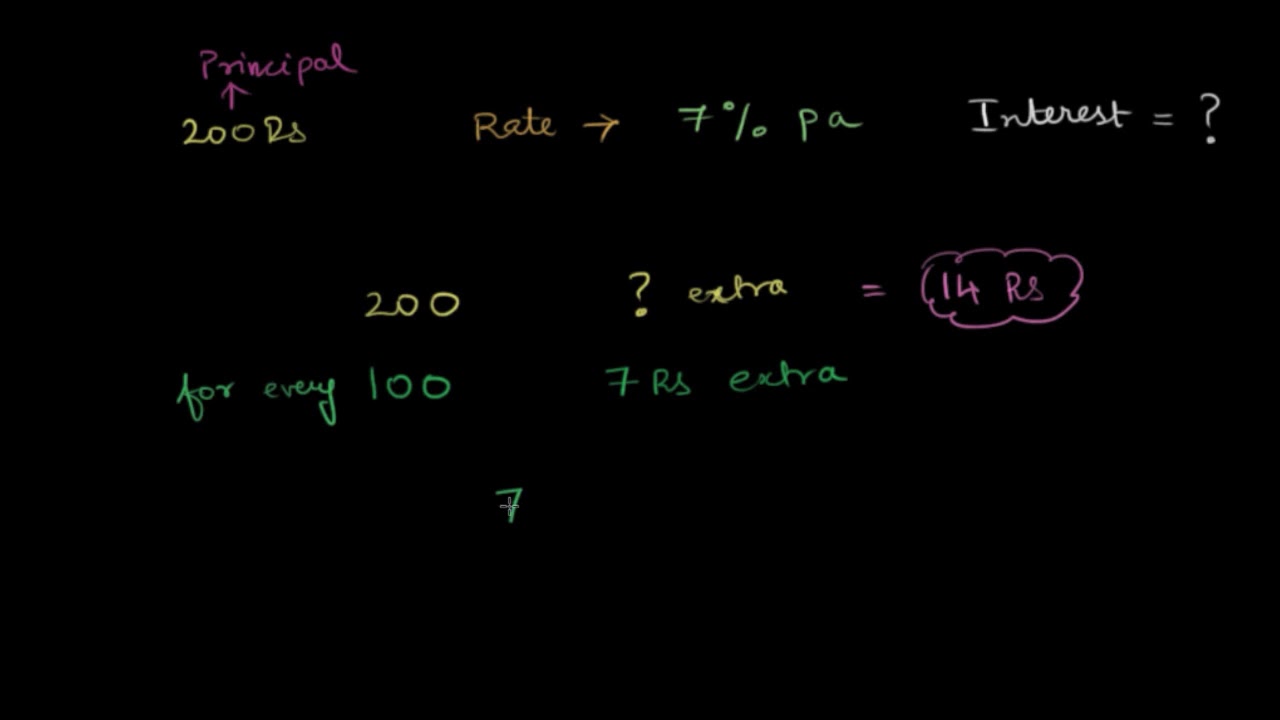 Principal
↑
200 Rs Rate → 7% pa Interest = ?
200 ? extra = 14 Rs
for every 100 7 Rs extra
7